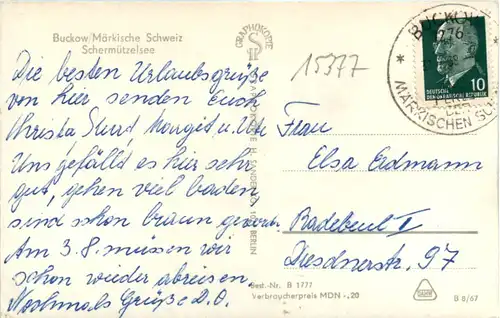 Buckow/Märkische Schweiz
Schermützelsee
Die besten Urlaubsgrüße
von hier senden Euch
Christa, Margit u. Ute
Uns gefällt es hier sehr
gut, gehen viel baden
sind schon braun
Am 3.8. müssen wir
schon wieder abreisen.
Nochmals Grüße D.O.
GRAPHOKOPIE
BERLIN
15377
Frau
Elsa Erdmann
Radebeul I
Dresdnerstr. 97
Best.-Nr. B 1777
Verbraucherpreis MDN -,20
B 8/67
BUCKOW
MÄRKISCHEN
DEUTSCHE
DEMOKRATISCHE REPUBLIK
10